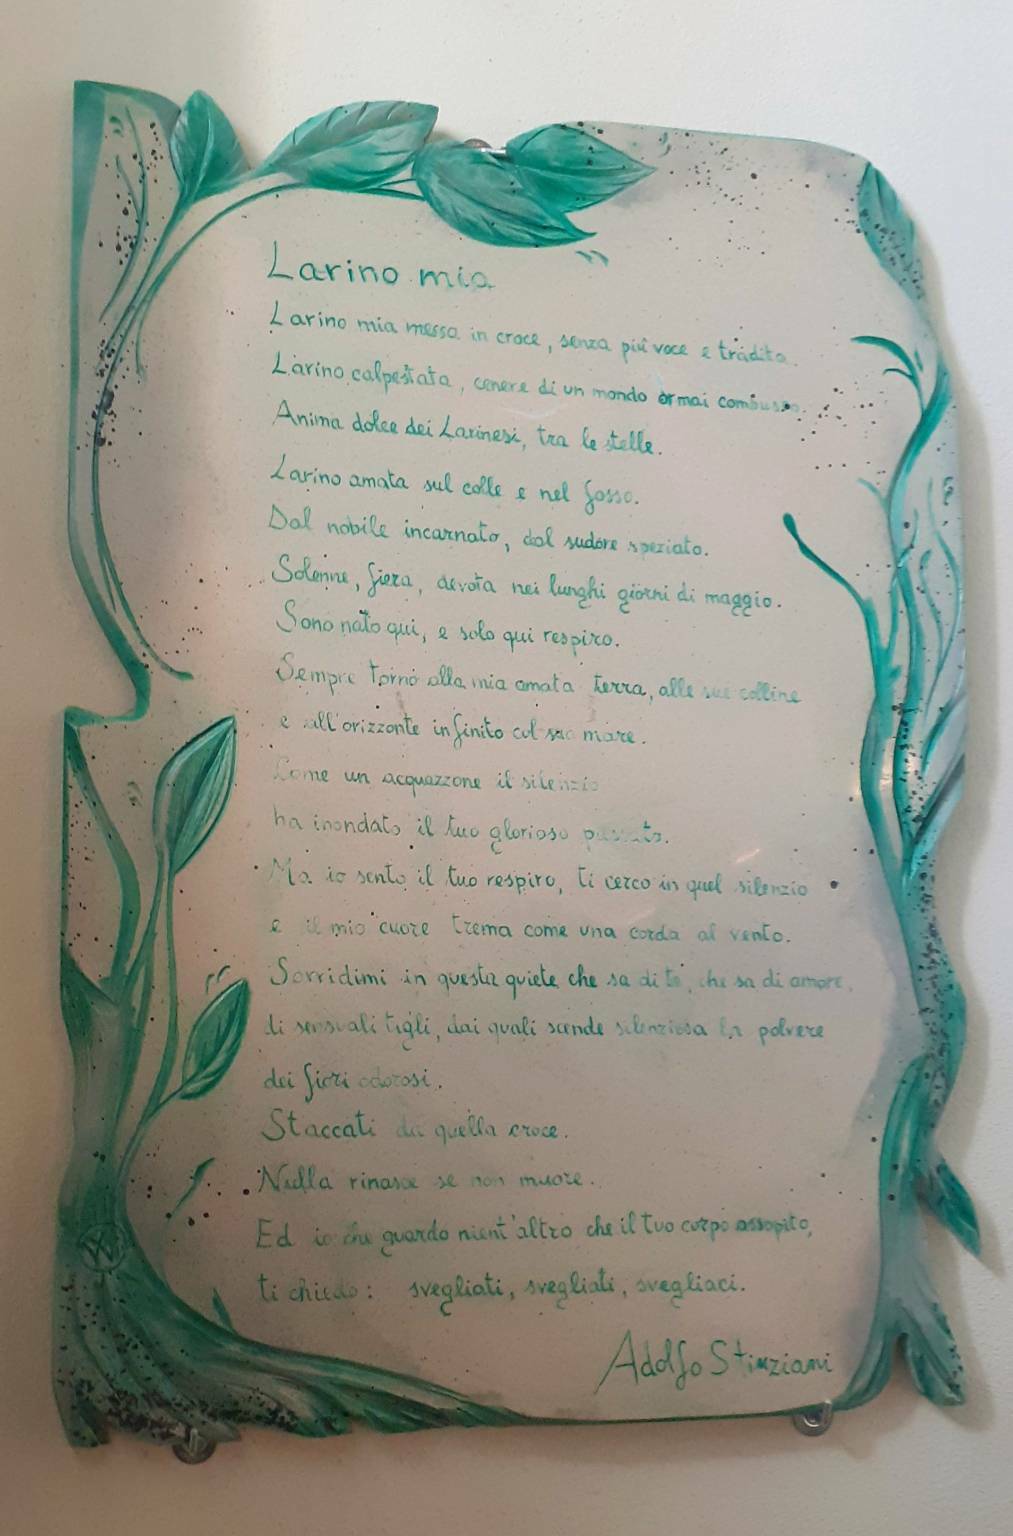 Larino mia
Larino mia messa in croce, senza più voce e tradita.
Larino calpestata, cenere di un mondo ormai combusto.
Anima dolce dei Larinesi, tra le stelle.
Larino amata sul colle e nel fosso.
Dal nobile incarnato, dal sudore speziato.
Solenne, fiera, devota nei lunghi giorni di maggio.
Sono nato qui, e solo qui respiro.
Sempre torno alla mia amata terra, alle sue colline
e all'orizzonte infinito col suo mare.
Come un acquazzone il silenzio
ha inondato il tuo glorioso passato.
Ma io sento il tuo respiro, ti cerco in quel silenzio
e il mio cuore trema come una corda al vento.
Sorridimi in questa quiete che sa di te, che sa di amore,
di sensuali tigli, dai quali scende silenziosa la polvere
dei fiori odorosi.
Staccati da quella croce.
Nulla rinasce se non muore.
Ed io che guardo nient'altro che il tuo corpo assopito,
ti chiedo: svegliati, svegliati, svegliaci.
Adolfo Stinziani